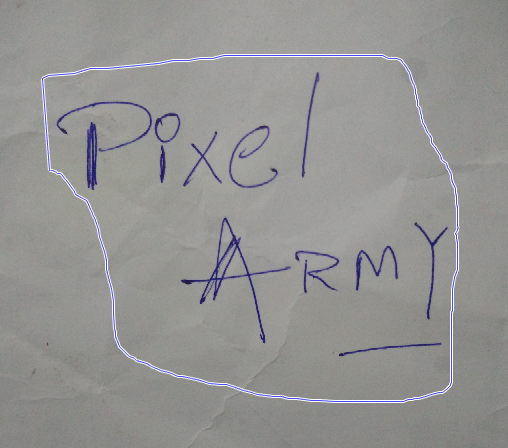 Pixel
ARMY